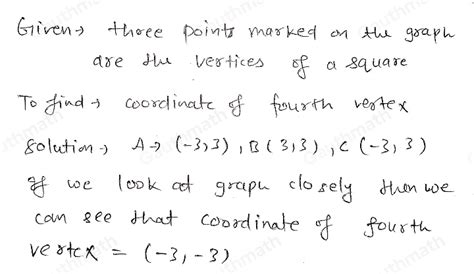 Given→ three points marked on the graph
are the vertices of a square
To find → coordinate of fourth vertex
Solution→ A→ (-3,3), B(3,3), C(-3, 3)
If we look at graph closely then we
can see that coordinate of fourth
vertex = (-3,-3)